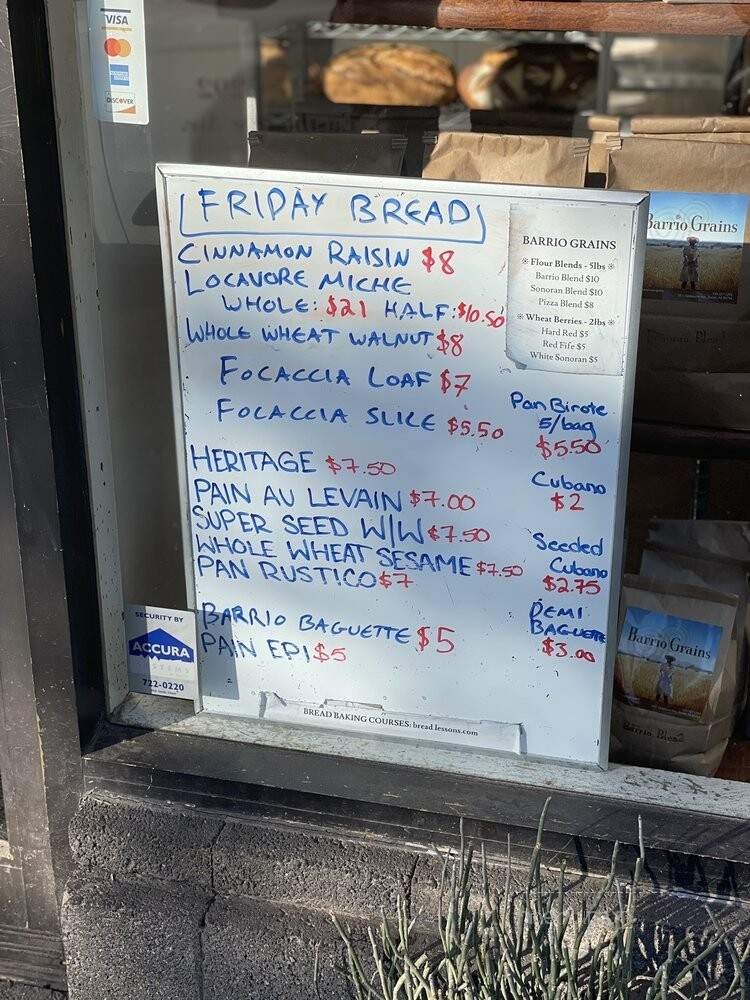 VISA
DISCOVER
FRIDAY BREAD
CINNAMON RAISIN $8
LOCAVORE MICHE
WHOLE: $21 HALF: $10.50
WHOLE WHEAT WALNUT $8
FOCACCIA LOAF $7
FOCACCIA SLICE $5.50
HERITAGE $7.50
PAIN AU LEVAIN $7.00
SUPER SEED W/W $7.50
WHOLE WHEAT SESAME $7.50
PAN RUSTICO $7
BARRIO BAGUETTE $5
PAIN EPI $5
BARRIO GRAINS
Flour Blends - 5lbs
Barrio Blend $10
Sonoran Blend $10
Pizza Blend $8
Wheat Berries - 2lbs
Hard Red $5
Red Fife $5
White Sonoran $5
Pan Birote
5/bag
$5.50
Cubano
$2
Seeded
Cubano
$2.75
DEMI
BAGUETTE
$3.00
BREAD BAKING COURSES: breadlessons.com
SECURITY BY
ACCURA
SYSTEMS
722-0220
Barrio Grains
Barrio Grains
Barrio Blend